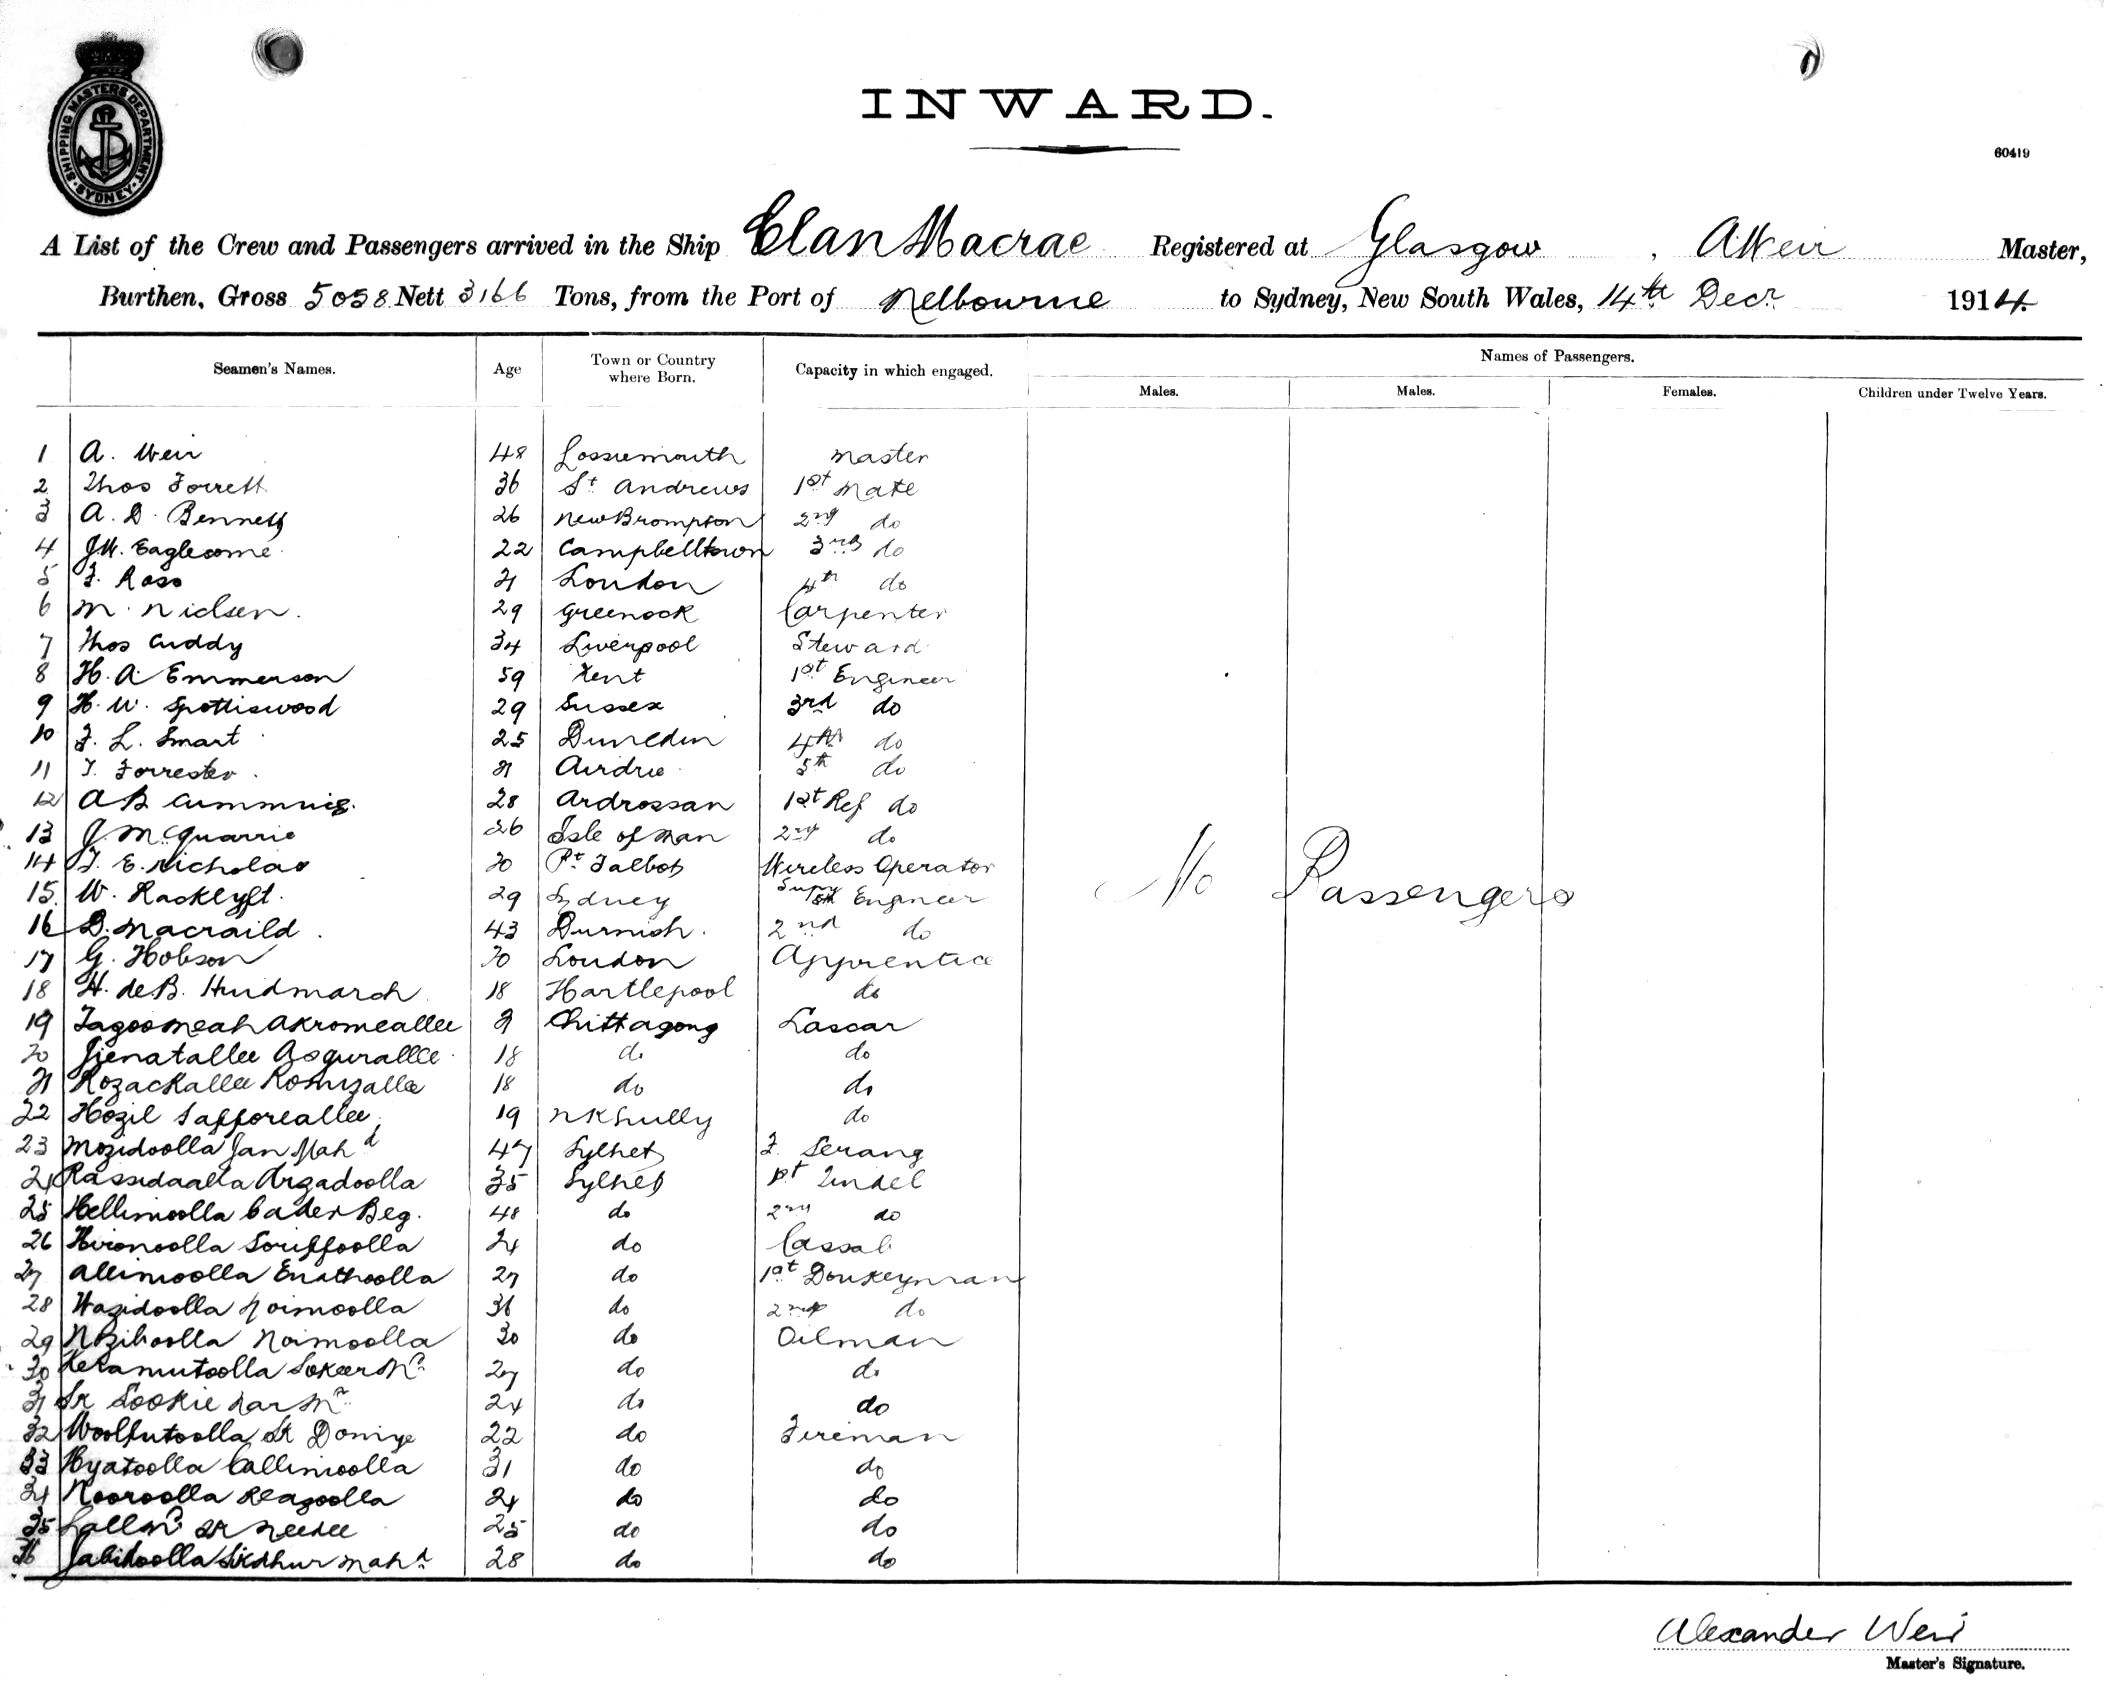 SHIPPING MASTERS DEPARTMENT SYDNEY
INWARD.
60419
A List of the Crew and Passengers arrived in the Ship Clan Macrae Registered at Glasgow, A Weir Master,
Burthen, Gross 5058 Nett 3166 Tons, from the Port of Melbourne to Sydney, New South Wales, 14th Decr 1914
Seamen's Names. Age Town or Country where Born. Capacity in which engaged. Names of Passengers.
Males. Males. Females. Children under Twelve Years.
1 A. Weir 48 Lossiemouth Master
2 Thos Forrett 36 St Andrews 1st Mate
3 A. D. Bennett 26 New Brompton 2nd do
4 J.W. Eaglesome 22 Campbelltown 3rd do
5 F. Ross 21 London 4th do
6 M. Nielsen. 29 Greenock Carpenter
7 Thos Cuddy 34 Liverpool Steward
8 H. A. Emmerson 59 Kent 1st Engineer
9 H. W. Spottiswood 29 Sussex 3rd do
10 F. L. Smart 25 Dunedin 4th do
11 T. Forrester. 21 Airdrie 5th do
12 A B Cumming. 28 Ardrossan 1st Ref do
13 J. McQuarrie 26 Isle of Man 2nd do
14 T. E. Nicholas 20 Pt Talbot Wireless Operator
15. W. Racklyft. 29 Sydney Supy 5th Engineer
16 D. Macraild. 43 Durnish. 2nd do
17 G. Hobson 20 London Apprentice
18 H. de B. Hindmarch 18 Hartlepool do
No Passengers
19 Tagoomeah Akromeallee 21 Chittagong Lascar
20 Jienatallee Asgurallee 18 do do
21 Rozackallee Romizallee 18 do do
22 Hozil Safforeallee 19 Nkhully do
23 Mozidoolla Jan Mahd 47 Sylhet F. Serang
24 Rassidaalla Arzadoolla 35 Sylhet 1st Tindel
25 Hellimoolla Cader Beg. 48 do 2nd do
26 Hironoolla Soriffoolla 24 do Cassab
27 Allimoolla Enathoolla 27 do 1st Donkeyman
28 Wazidoolla Noimoolla 36 do 2nd do
29 Noziboolla Noimoolla 30 do Oilman
30 Keramutoolla Sokeer Md 27 do do
31 Sk Sookie Lar Md 24 do do
32 Woolfutoolla Sk Doniye 22 do Fireman
33 Hyatoolla Collimoolla 31 do do
34 Nooroolla Reazoolla 24 do do
35 Lall Md Sk Needee 25 do do
36 Jabidoolla Sikdhur Mahd 28 do do
Alexander Weir
Master's Signature.